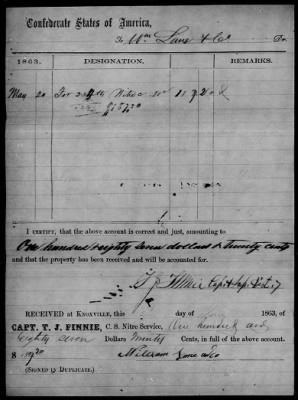 Confederate States of America,
To Wm Lane & Co Dr.
1863. DESIGNATION. REMARKS.
May 20 For 234 lb Nitre 80c 187 20
I CERTIFY, that the above account is correct and just, amounting to
One hundred eighty seven dollars & twenty cents
and that the property has been received and will be accounted for.
T J Finnie Capt & Supt Dist 7
RECEIVED at KNOXVILLE, this day of 1863, of
CAPT. T. J. FINNIE, C. S. Nitre Service, One hundred and
eighty seven Dollars twenty Cents, in full of the above account.
$ 187 20 William Lane & Co
(SIGNED IN DUPLICATE.)